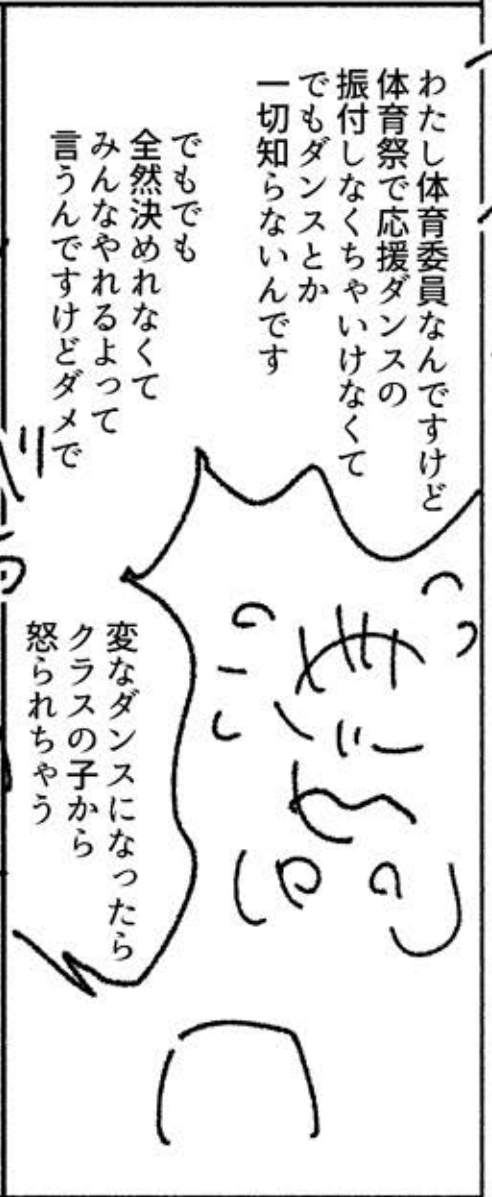 わたし体育委員なんですけど
体育祭で応援ダンスの
振付しなくちゃいけなくて
でもダンスとか
一切知らないんです
でもでも
全然決めれなくて
みんなやれるよって
言うんですけどダメで
変なダンスになったら
クラスの子から
怒られちゃう